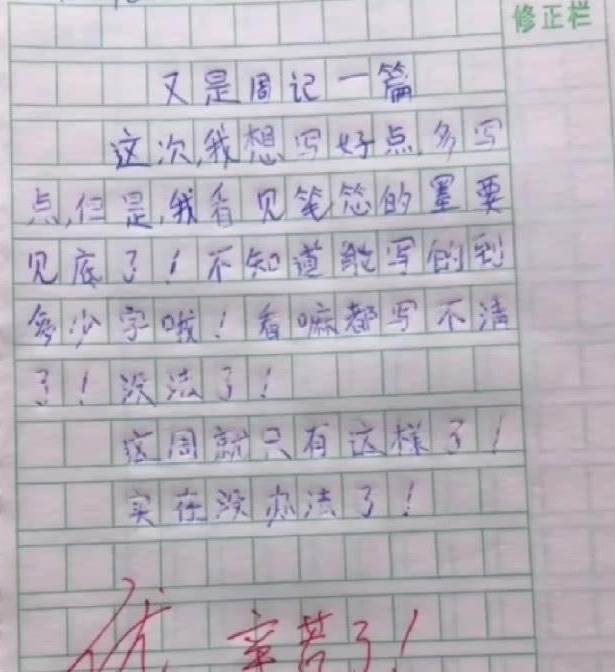 修正栏
又是周记一篇
这次,我想写好点,多写
点,但是,我看见笔芯的墨要
见底了！不知道能写的到
多少字哦！看嘛都写不清
了！没法了！
这周就只有这样了！
实在没办法了！
优 辛苦了！